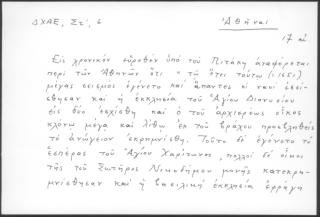 ΔΧΑΕ, Στ΄, 6
Ἀθῆναι
17 αἰ
Εἰς χρονικόν εὑρεθέν ὑπό τοῦ Πιτάκη ἀναφέρεται
περί τῶν Ἀθηνῶν ὅτι "τῷ ἔτει τούτῳ (=1651)
μέγας σεισμός ἐγένετο καί ἅπαντες οἱ ναοί ἐσεί-
σθησαν καί ἡ ἐκκλησία τοῦ Ἁγίου Διονυσίου
εἰς δύο ἐσχίσθη καί ὁ τοῦ ἀρχιερέως οἶκος
χάνω μέγα καί λίθῳ ἐκ τοῦ βράχου προσβληθείς
τό ἀνώγειον ἐκρημνίσθη. Τοῦτο δέ ἐγένετο τό
ἑσπέρας τοῦ Ἁγίου Χαρίτωνος, πολλοί δέ οἶκοι
τῆς τοῦ Σωτῆρος Νικοδήμου μονῆς κατεκρη-
μνίσθησαν καί ἡ βασιλική ἐκκλησία ἐρράγη